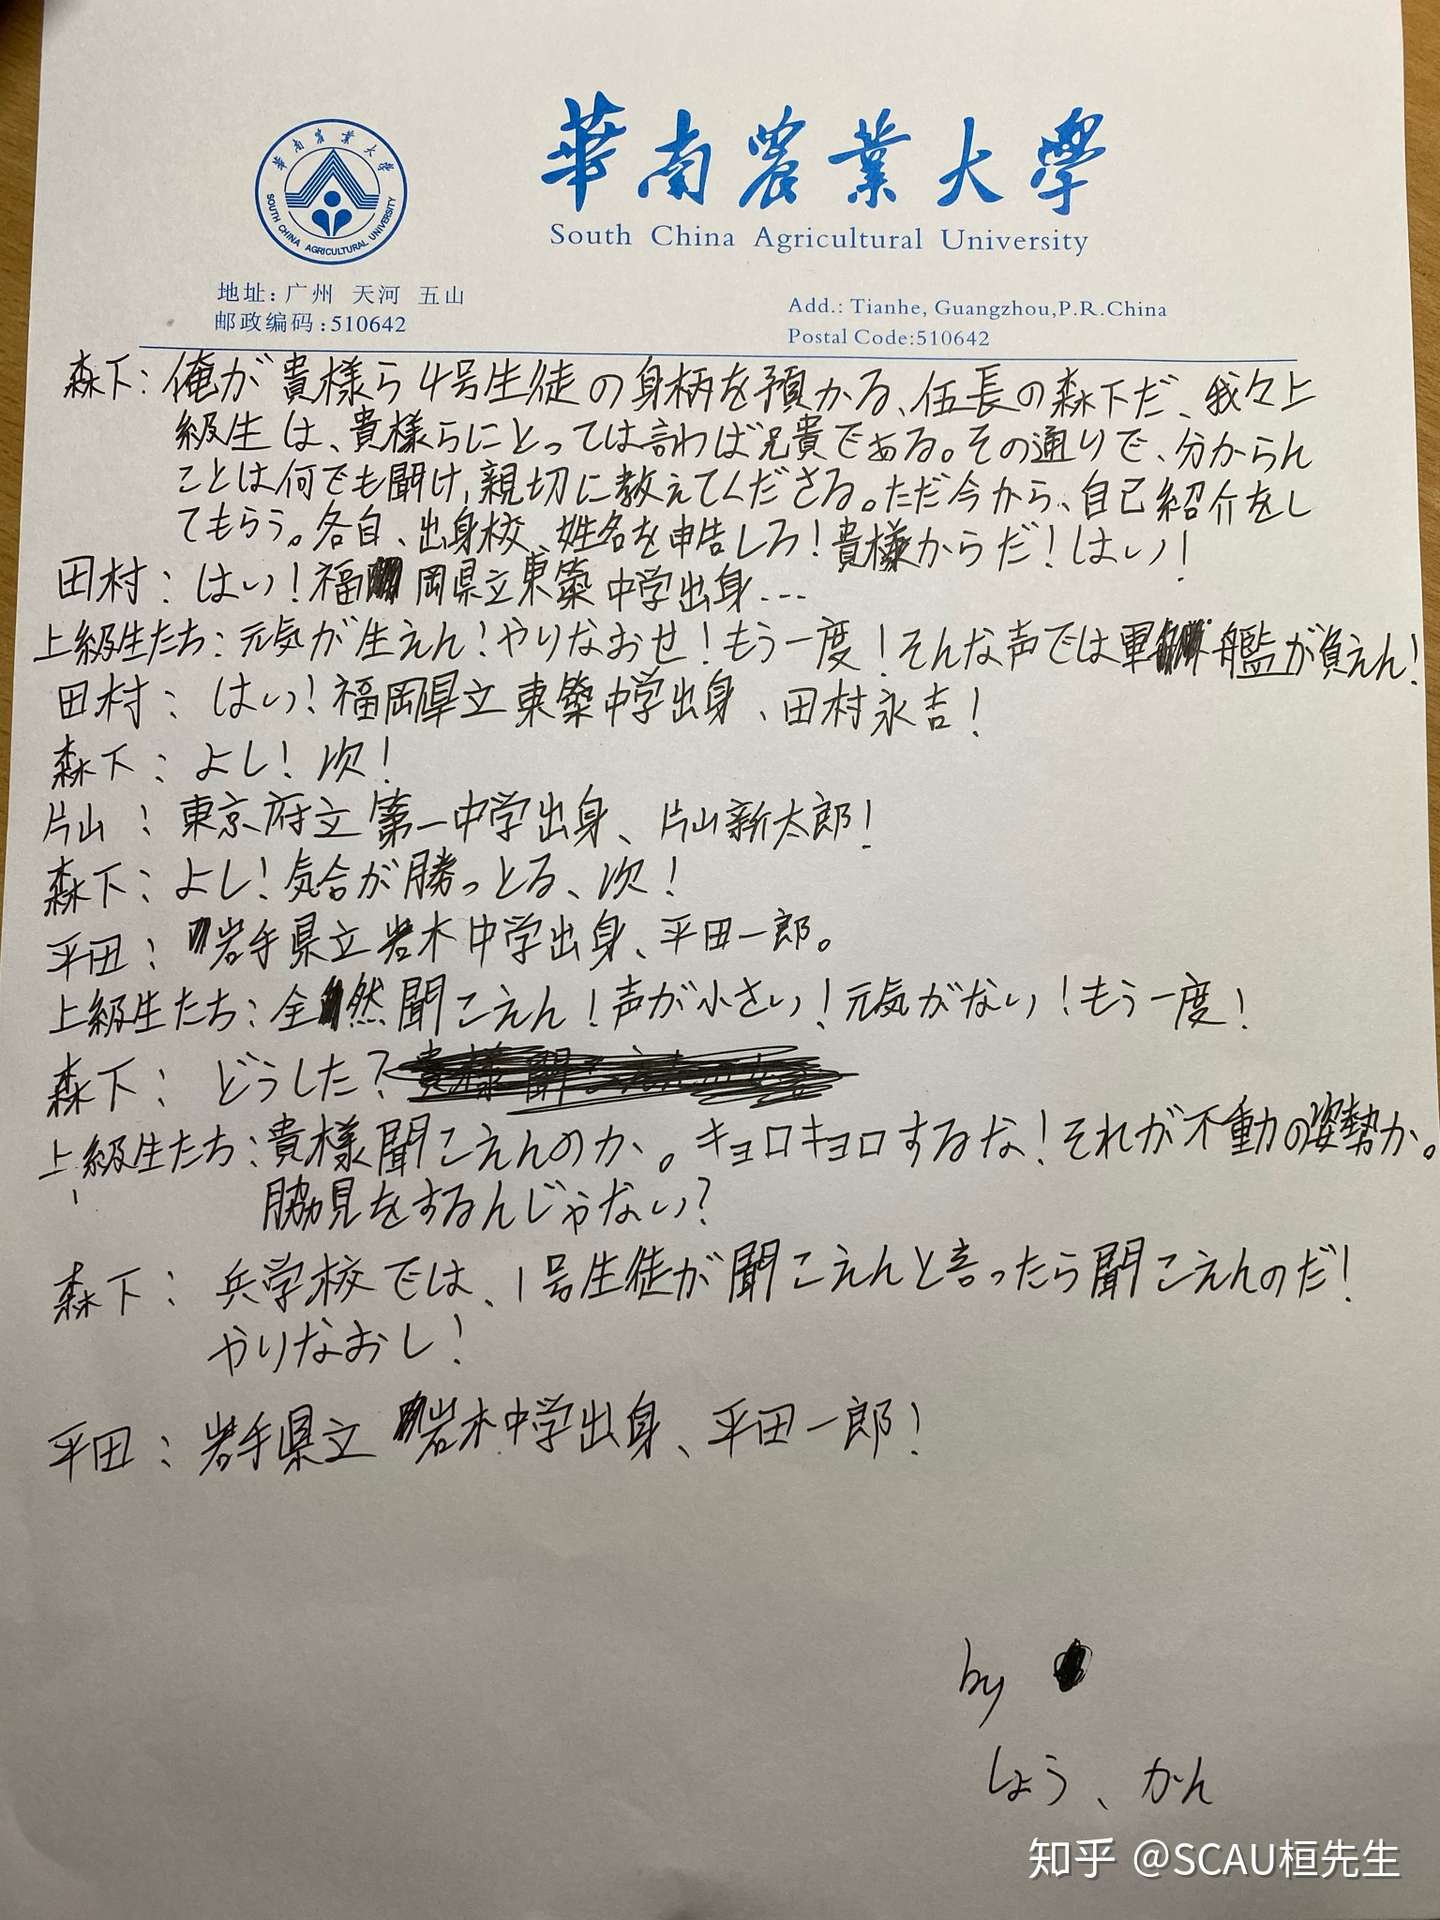 華南農業大學
South China Agricultural University
華南農業大學
SOUTH CHINA AGRICULTURAL UNIVERSITY
地址:广州 天河 五山
邮政编码:510642
Add.: Tianhe, Guangzhou,P.R.China
Postal Code:510642
森下：俺が貴様ら4号生徒の身柄を預かる、伍長の森下だ、我々上
級生は、貴様らにとっては言わば兄貴である。その通りで、分からん
ことは何でも聞け,親切に教えてくださる。ただ今から、自己紹介をし
てもらう。各自、出身校、姓名を申告しろ！貴様からだ！はい！
田村：はい！福岡県立東築中学出身...
上級生たち：元気が生えん！やりなおせ！もう一度！そんな声では軍艦が負えん！
田村：はい！福岡県立東築中学出身、田村永吉！
森下：よし！次！
片山：東京府立第一中学出身、片山新太郎！
森下：よし！気合が勝っとる、次！
平田：岩手県立岩木中学出身、平田一郎。
上級生たち：全然聞こえん！声が小さい！元気がない！もう一度！
森下：どうした？
上級生たち：貴様聞こえんのか。キョロキョロするな！それが不動の姿勢か。
脇見をするんじゃない？
森下：兵学校では、1号生徒が聞こえんと言ったら聞こえんのだ！
やりなおし！
平田：岩手県立岩木中学出身、平田一郎！
by
しょう、かん
知乎 @SCAU桓先生